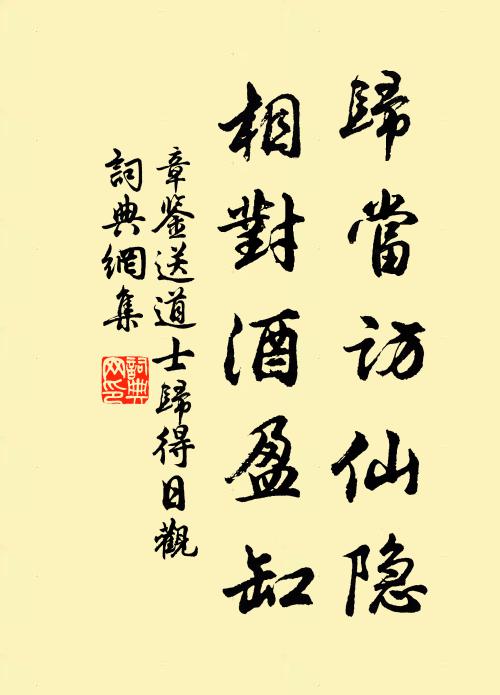 歸當访仙隐
相對酒盈缸
章鉴送道士歸得日觀
詞典網集
詞典网印